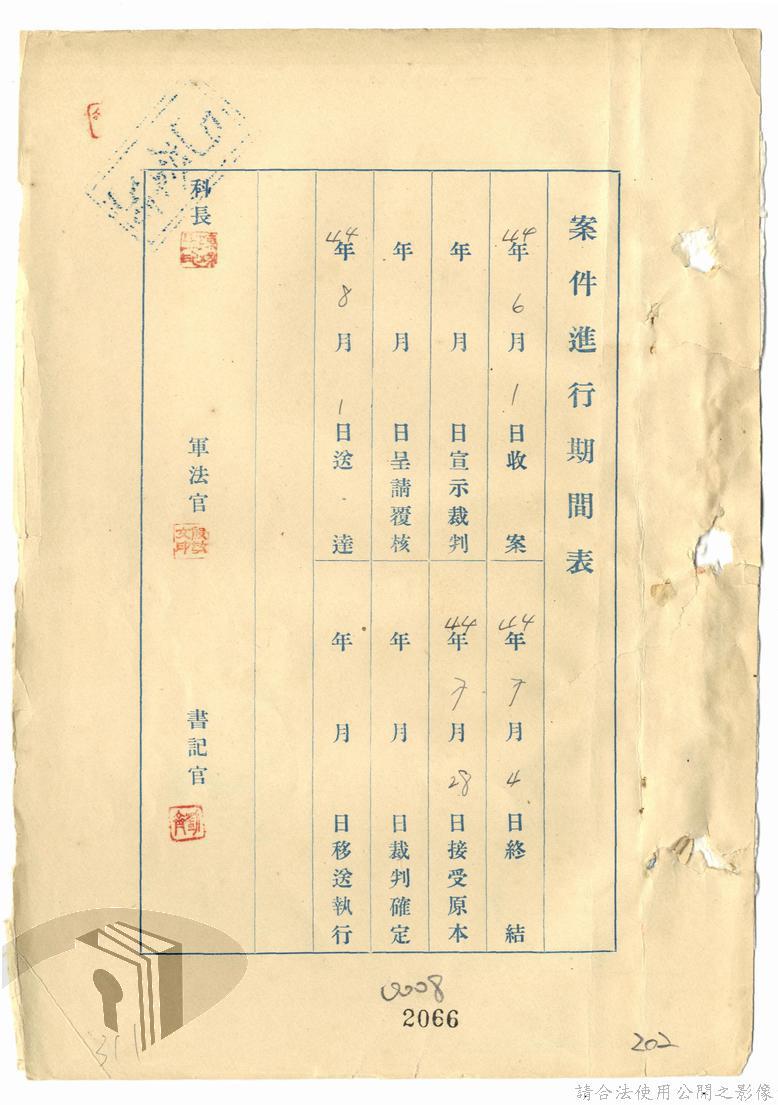 案件進行期間表
44年6月1日收案
44年7月4日終結
年月日宣示裁判
44年7月28日接受原本
年月日呈請覆核
年月日裁判確定
44年8月1日送達
年月日移送執行
科長
軍法官
書記官
0008
2066
202
311
請合法使用公開之影像